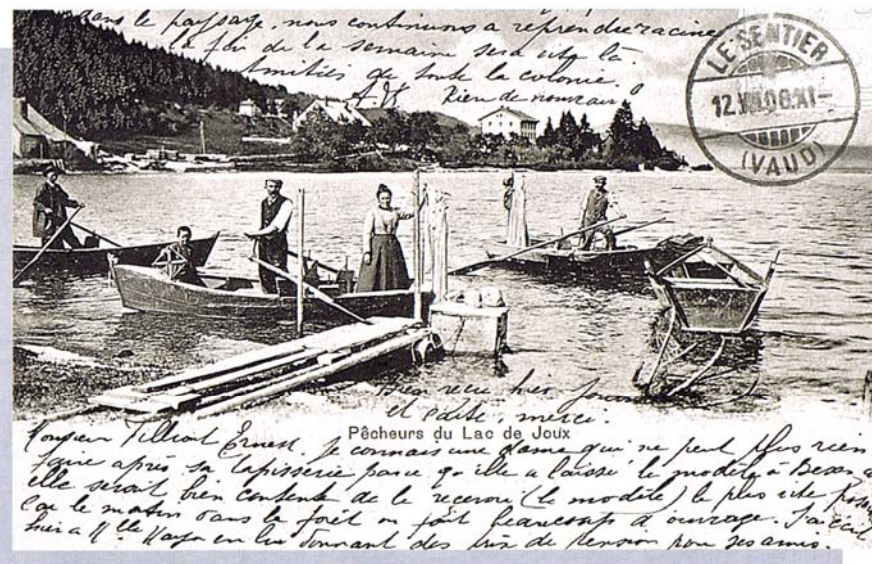 dans le paysage, nous continuons à reprendre racine
la fin de la semaine sera vite là
Amitiés de toute la colonie
Rien de nouveau
LE SENTIER
12.
(VAUD)
Bien reçu hier
et carte, merci.
Pêcheurs du Lac de Joux
Monsieur Ernest, je connais une dame qui ne peut plus rien
faire après sa tapisserie parce qu'elle a laissé le modèle à
elle serait bien contente de le recevoir (le modèle) le plus vite
Car le matin dans la forêt on fait beaucoup d'ouvrage. J'ai écrit
hier à Mlle en lui donnant des prix de pension pour ses amis.